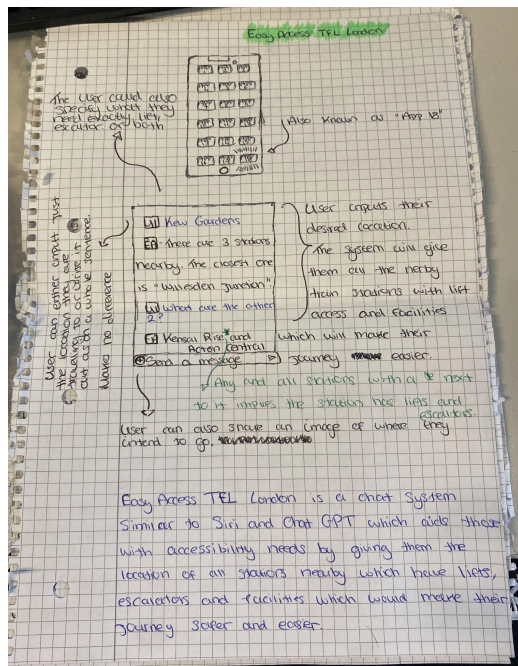 Easy Access TFL London
The user could also
specify what they
need exactly lift,
escator or both
Also known as "App 18"
User can either input just
the location they are
traveling to or write it
out as a whole sentence.
Makes no difference
Kew Gardens
EA There are 3 stations
nearby. The closest one
is "Willesden Junction".
What are the other
2?
EA Kensal Rise* and
Acton Central
Send a message
User inputs their
desired location.
The system will give
them all the nerby
train stations with lift
access and facilities
which will make their
journey easier.
Any and all stations with a * next
to it implies the station has lifts and
escaltors.
User can also share an image of where they
intend to go.
Easy Access TFL London is a chat system
Similar to Siri and Chat GPT which aids those
with accessibility needs by giving them the
location of all stations nearby which have lifts,
escalators and facilities which would make their
journey safer and easier.